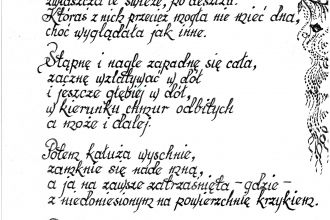 zwłaszcza te świeże, po deszczu.
Któraś z nich przecież mogła nie mieć dna,
choć wyglądała jak inne.
Stąpnę i nagle zapadnę się cała,
zacznę wzlatywać w dół
i jeszcze głębiej w dół,
w kierunku chmur odbitych
a może i dalej.
Potem kałuża wyschnie,
zamknie się nade mną,
a ja na zawsze zatrzaśnięta - gdzie -
z niedoniesionym na powierzchnię krzykiem.